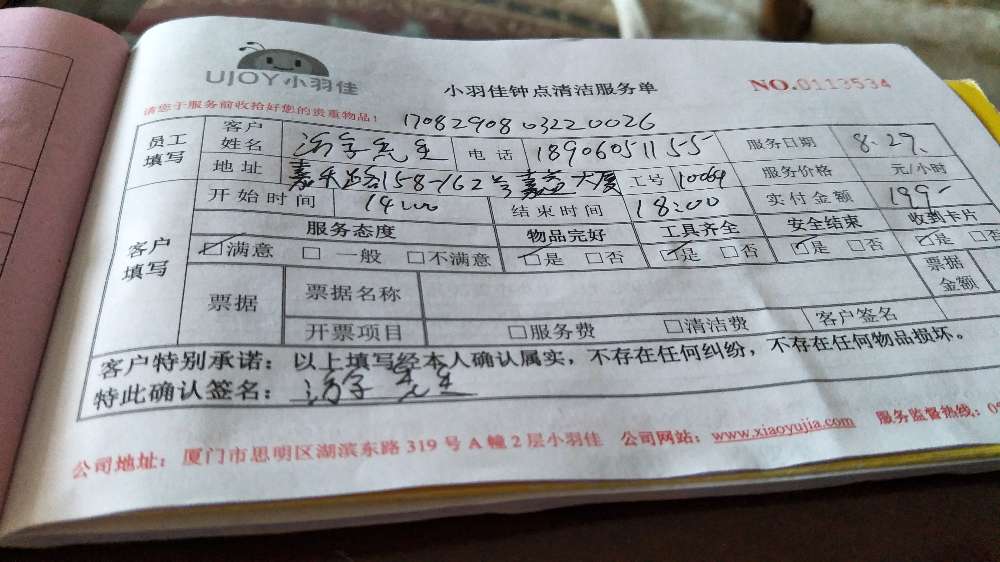 UJOY小羽佳
小羽佳钟点清洁服务单
NO.0113534
请您于服务前收拾好您的贵重物品！
1708290803220026
员工填写 客户姓名 先生 电话 18906051155 服务日期 8.29.
地址 嘉禾路158-162号嘉英大厦 工号 10069 服务价格 元/小时
客户填写 开始时间 14:00 结束时间 18:00 实付金额 199-
服务态度 物品完好 工具齐全 安全结束 收到卡片
☑满意 □一般 □不满意 ☑是 □否 ☑是 □否 ☑是 □否 ☑是 □否
票据 票据名称 票据金额
开票项目 □服务费 □清洁费 客户签名
客户特别承诺：以上填写经本人确认属实，不存在任何纠纷，不存在任何物品损坏。
特此确认签名： 先生
公司地址：厦门市思明区湖滨东路319号A幢2层小羽佳 公司网站：www.xiaoyujia.com 服务监督热线：05